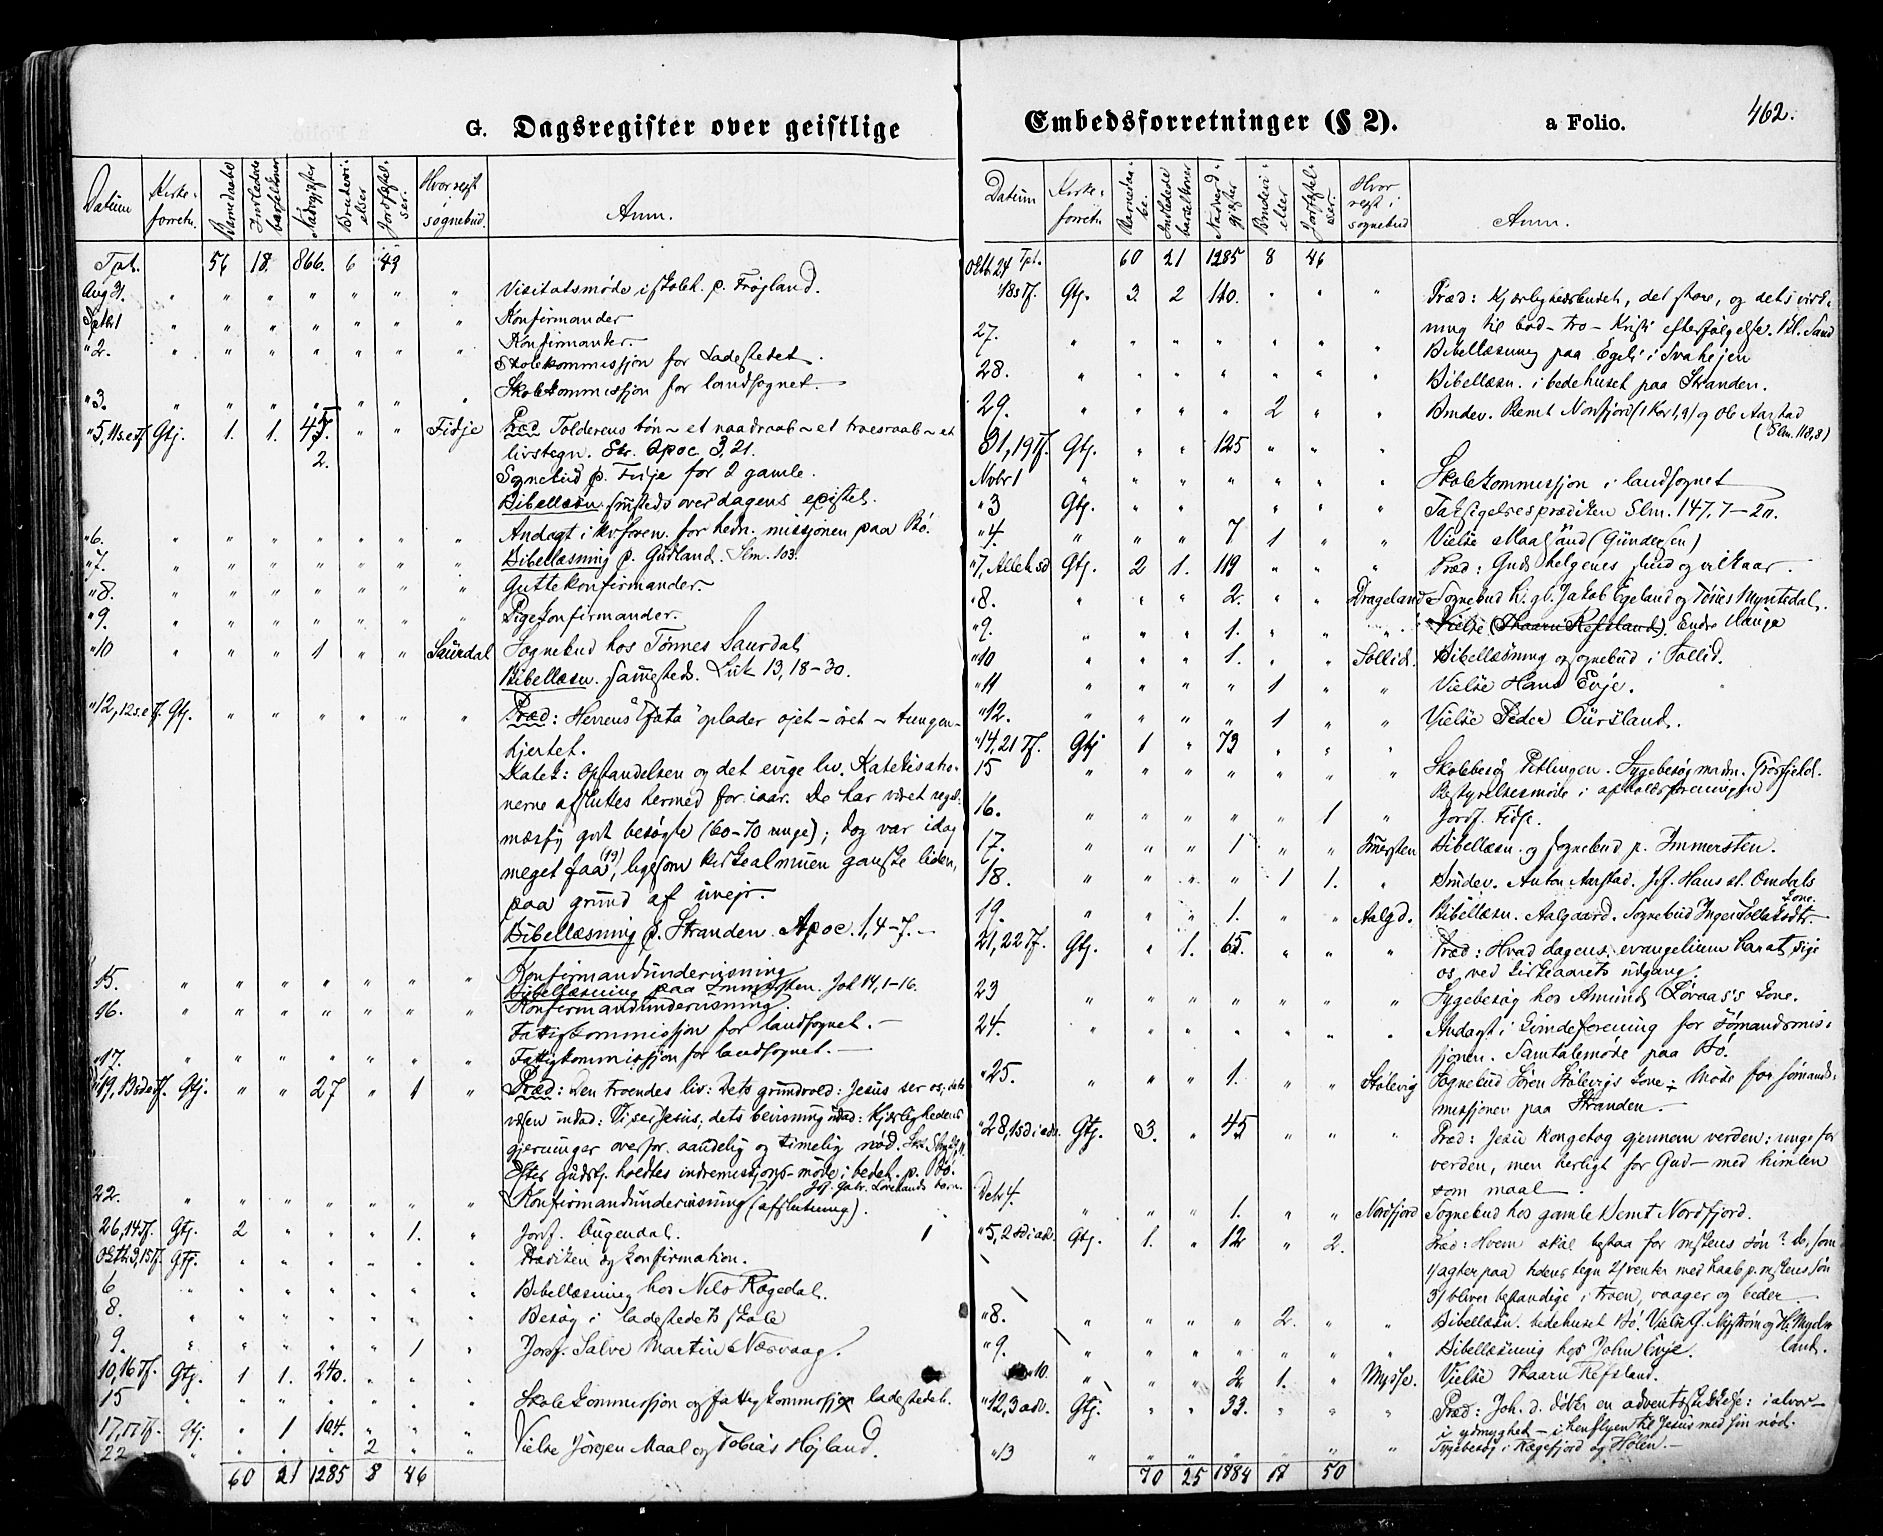 G. Dagsregister over geistlige
Datum Kirke-forretn. Barnedaabe Indledede barselkoner Nadvgjester Brudevielser Jordfæstelser. Hvor rejst i sognebud. Anm.
Tpt. 56 18. 866. 6 43
Aug 31. " " " " " " " Visitatsmøde i skoleh. p. Frøjland.
Sptb 1 " " " " " " " Konfirmander
" 2. " " " " " " " Konfirmander.
Skolekommissjon for Ladestedet.
" 3. " " " " " " " Skolekommissjon for landsognet.
" 5, 11 s.e.Tf. Gtj. 1. 1. 45. " " Fidje Præd Tolderens bøn – et naadraab – et troesraab – et
2. livstegn. Skr. Apoc 3,21.
Sognebud p. Fidje for 2 gamle.
Bibellæsn. smsteds over dagens epistel.
" 6. " " " " " " " Andagt i kvforen. for hedn. missjonen paa Bø.
" 7. " " " " " " " Bibellæsning p. Gudland. Slm. 103.
" 8. " " " " " " " Guttekonfirmander.
" 9. " " " " " " " Pigekonfirmander.
" 10 " " " 1 " " Saurdal Sognebud hos Tønnes Saurdal
Bibellæsn. sammesteds. Luk 13, 18–30.
" 12, 12 s.e.Tf. Gtj. " " " " " " Præd: Herrens "Effata" oplader øjet – øret – tungen –
hjertet.
Katek: Opstandelsen og det evige liv. Katekisatio-
nerne afsluttes hermed for iaar. De har været regel-
mæssig godt besøgte (60–70 unge); dog var idag
meget faa (19), ligesom kirkealmuen ganske liden,
paa grund af uvejr.
Bibellæsning p. Stranden. Apoc. 1, 4–7. –
15. " " " " " " " Konfirmandundervisning
Bibellæsning paa Immersten. Joh 14, 1–16.
16. " " " " " " " Konfirmandundervisning.
Fattigkommissjon for landsognet. –
" 17. " " " " " " " Fattigkommissjon for landsognet. –
" 19, 13 s.e.Tf. Gtj. " " 27 " 1 " Præd: Den troendes liv: Dets grundvold: Jesus ser os; dets
væsen indad: Vi se Jesus; dets bevisning udad: Kjærlighedens
gjerninger overfor aandelig og timelig nød.
Efter gudstj. holdtes indremissjons-møde i bedeh. p. Bø.
22. " " " " " " " Konfirmandundervisning (afslutning).
26, 14 Tf. Gtj. 2 " " " 1. " Jordf. Ougendal. 1
Oktb 3, 15 Tf. Gtj. " " " " " " Prædiken og konfirmation.
6 " " " " " " " Bibellæsning hos Nils Rægedal.
8. " " " " " " " Besøg i ladestedets skole
9. " " " " " 1 " Jordf. Salve Martin Næsvaag.
10, 16 Tf. Gtj. 1 1. 240. " " "
15 " " " " " " " Skolekommissjon og fattigkommissjon ladestedet.
17, 17 Tf. Gtj. " 1 104. " " "
22 " " " " 2 " " Vielse Jørgen Maal og Tobias Højland.
60 21 1285 8 46
Embedsforretninger (§ 2). a Folio. 462.
Datum Kirke-forretn. Barnedaabe. Indledede barselkoner Nadverdgjester Brudevielser Jordfæstelser. Hvor rejst i sognebud Anm.
Oktb. 24 Tpt. 60 21 1285 8 46
18 s Tf. Gtj. 3. 2 110. " " " Præd: Kjærlighedsbudet, det store, og dets virk-
ning til bod – tro – Kristi efterfølgelse.
27. " " " " " " " Bibellæsning paa Egeli i Svahejen
28. " " " " " " " Bibellæsn. i bedehuset paa Stranden.
29. " " " " 2 " " Brudev. Bernt Nordfjord (1 Kor 1,9) og Ob Aarstad
(Slm. 118,8)
31, 19 Tf. Gtj. " " 125 " " "
Nvbr 1 " " " " " " " Skolekommissjon i landsognet
" 3 Gtj. " " " " " " Taksigelsesprædiken Slm. 147, 7–20.
" 4. " " " 7 1 " " Vielse Maaland (Gundersen)
" 7, Alleh sd Gtj. 2 1. 119 " " " Præd: Guds helgenes sind og vilkaar –
" 8. " " " 2. " " Drageland Sognebud h. gl. Jakob Egeland og Tønes Myntedal.
" 9. " " " 1. " " "
" 10 " " " 1. " " Sollid. Bibellæsning og sognebud i Sollid.
" 11 " " " " 1 " " Vielse Hans Evje.
" 12. " " " " 1 " " Vielse Peder Oursland.
" 14, 21 Tf. Gtj 1 " 73 " " "
15 " " " " " " " Skolebesøg Petlingen. Sygebesøg
Bestyrelsesmøde i afholdsforeningen
16. " " " " " 1 " Jordf. Fidje.
17. " " " 1 " " Imersten Bibellæsn. og sognebud p. Immersten.
18. " " " " 1 1. " Brudev. Anton Aarstad. Jf. Hans st. Omdals
kone.
19. " " " 1. " " Aalgd. Bibellæsn. Aalgaard. Sognebud Inger
21, 22 Tf. Gtj. " 1. 65. " " " Præd: Hvad dagens evangelium har at sige
os ved kirkeaarets udgang.
23 " " " " " " " Sygebesøg hos Amund Løvaas's kone.
24. " " " " " " " Andagt i kvindeforening for sømandsmis-
sjonen. Samtalemøde paa Bø.
" 25. " " " 1. " " Stølevig Sognebud Søren Stølevigs kone; Møde for sømands-
missjonen paa Stranden. –
" 28, 1 sd i adv. Gtj. 3. " 45 " " " Præd: Jesu kongetog gjennem verden: ringe for
verden, men herligt for Gud – med himlen
som maal –
Debr 4. " " " 1. " " Nordfjord Sognebud hos gamle Bernt Nordfjord.
" 5, 2 sd i adv. Gtj. 1. " 12 " 2. Præd: Hvem skal bestaa for mskens søn? Ib, som
1/ agter paa tidens tegn 2/ venter med haab p. mskens søn
3/ bliver bestandige i troen, vaager og beder.
" 8. " " " " 2. " " Bibellæsn. bedehuset Bø. Vielse G. Nystrøm og H. Myde
land.
" 9. " " " " " " " Bibellæsning hos John Evje.
10. " " " 2 1. " Mydse. Vielse Skaaru Refsland.
" 12, 3 adv. Gtj. " " 33. " " " Præd: Joh. d. døber en adventsskikkelse: i alvor –
i ydmyghed – i henflyen til Jesus med sin nød.
" 13 " " " " " " " Sygebesøg i Rægefjord og Hølen. –
70 25 1884 17 50